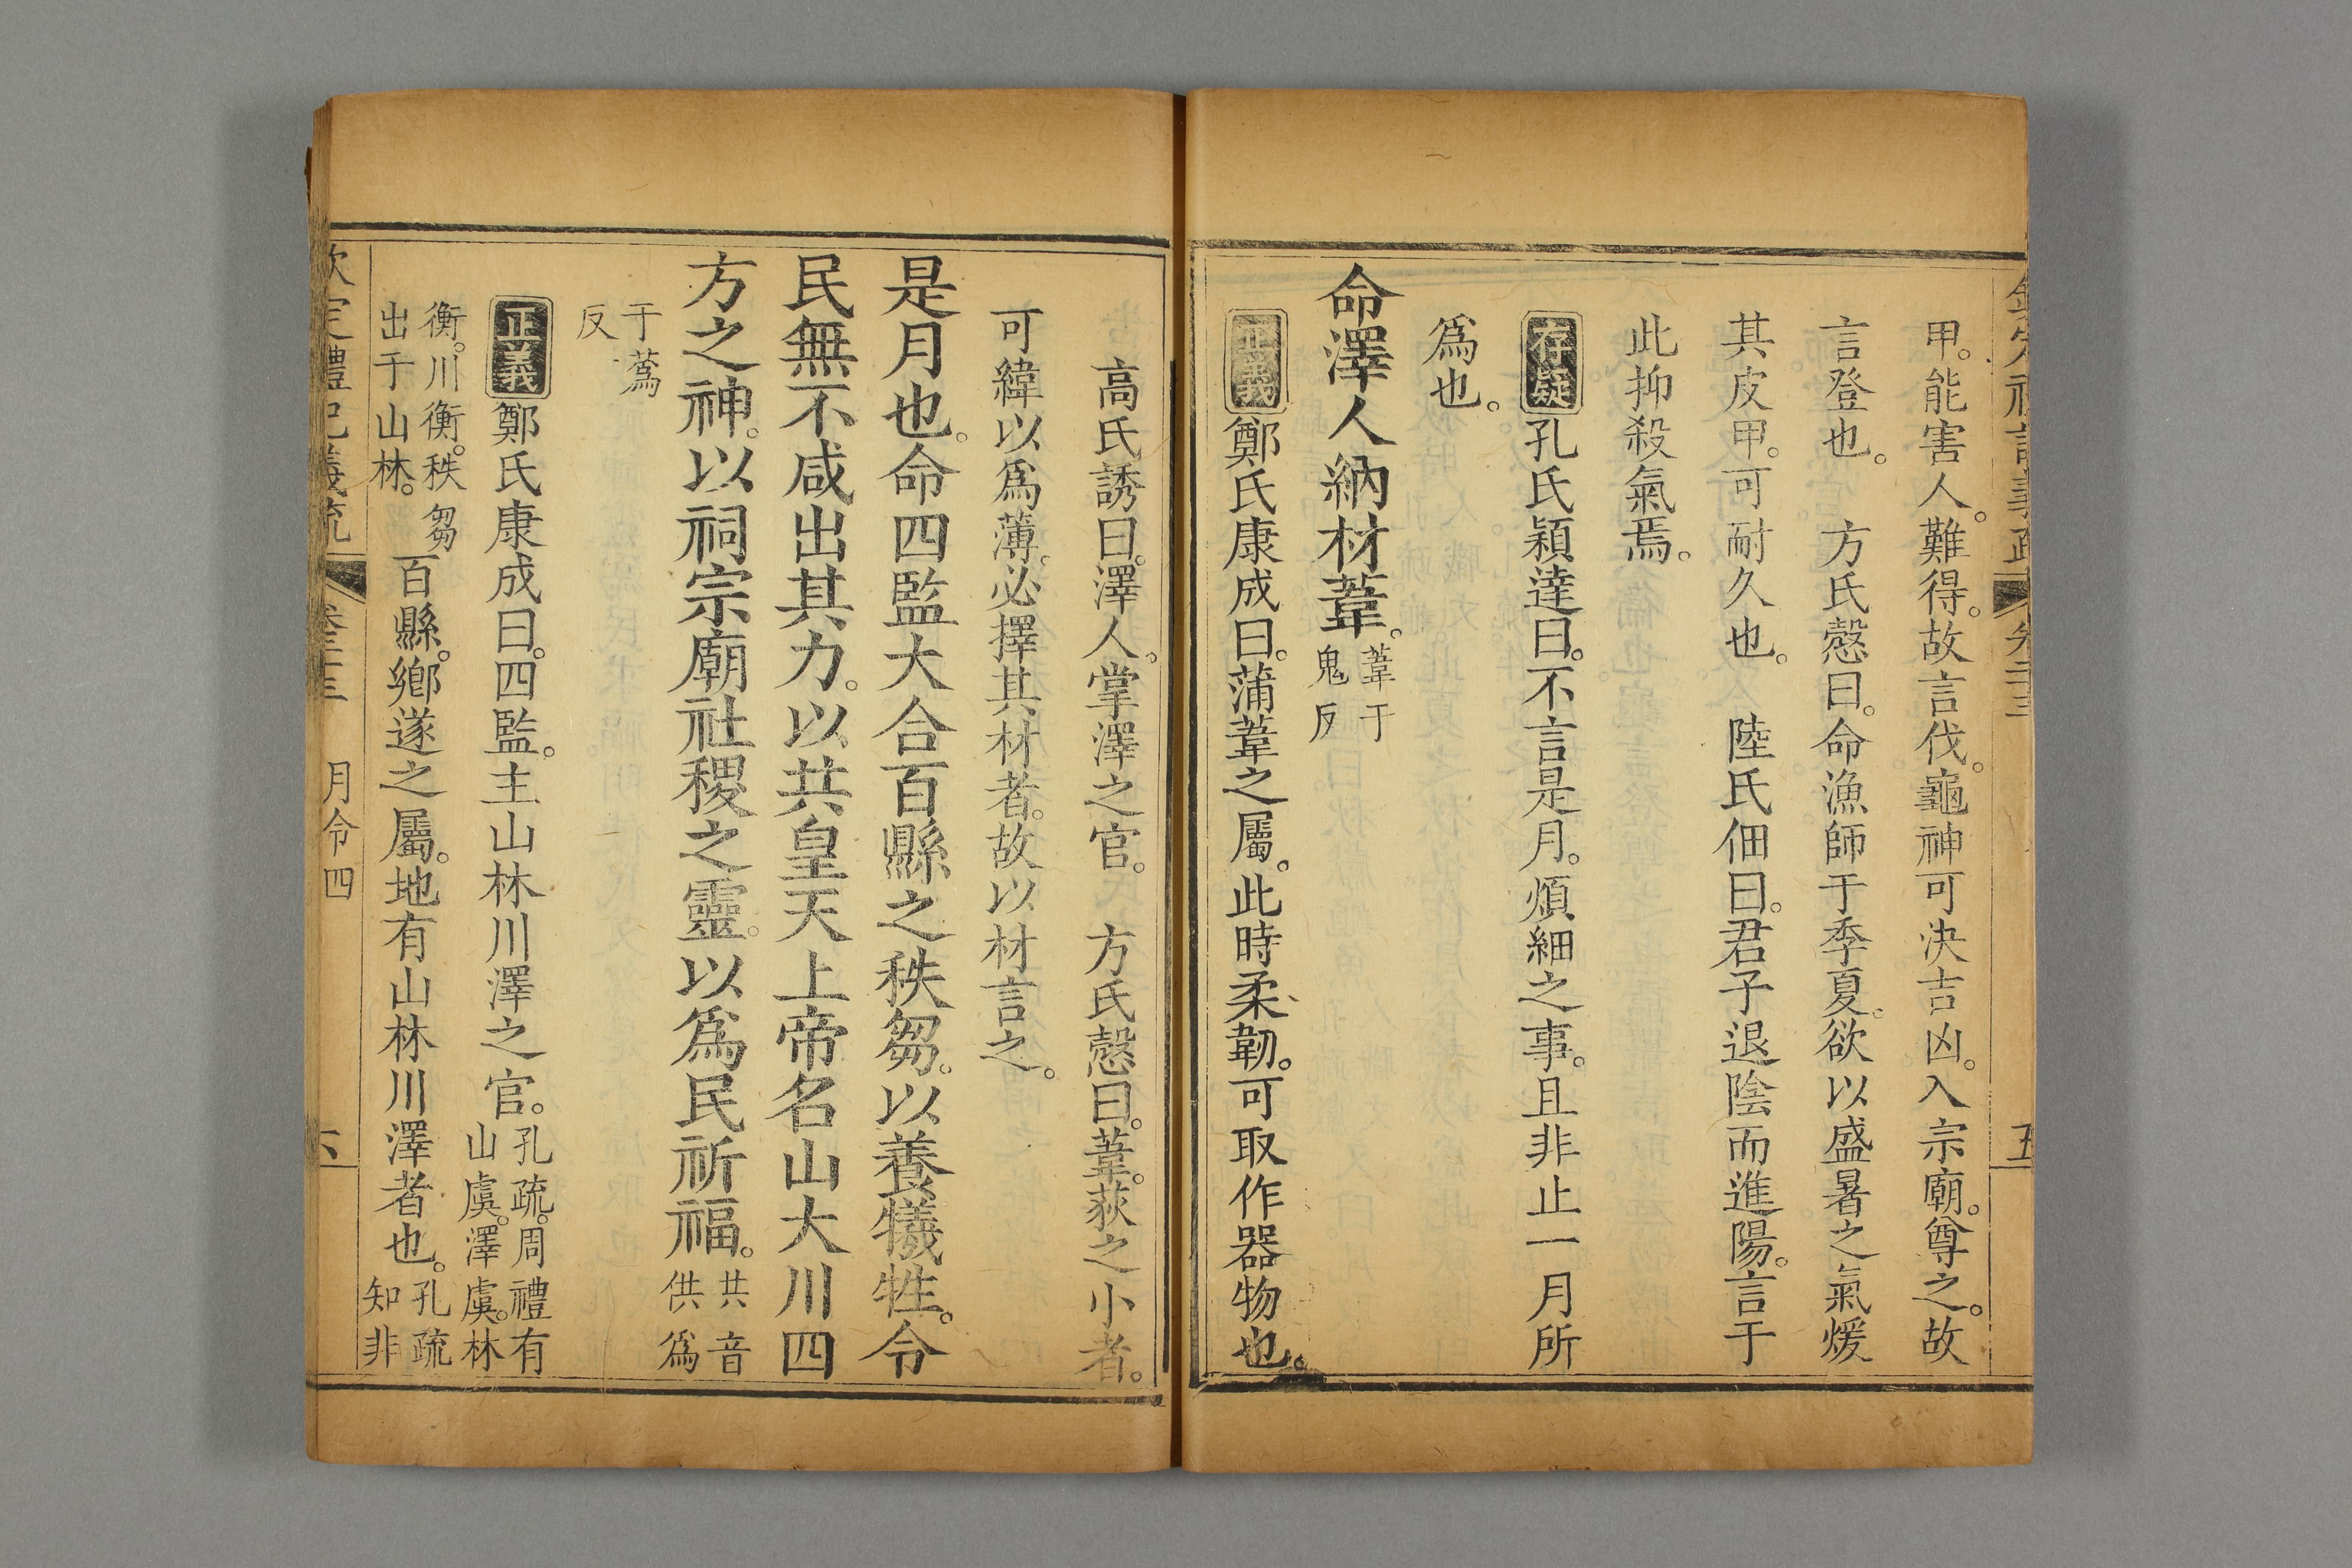 甲。能害人。難得。故言伐。龜神可決吉凶。入宗廟。尊之。故
言登也。　方氏慤曰。命漁師于季夏。欲以盛暑之氣煖
其皮甲。可耐久也。　陸氏佃曰。君子退陰而進陽。言于
此抑殺氣焉。
存疑孔氏穎達曰。不言是月。煩細之事。且非止一月所
爲也。
命澤人納材葦。葦于鬼反
正義鄭氏康成曰。蒲葦之屬。此時柔韌。可取作器物也。
高氏誘曰。澤人。掌澤之官。　方氏慤曰。葦。荻之小者。
可緯以爲薄。必擇其材者。故以材言之。
是月也。命四監大合百縣之秩芻。以養犧牲。令
民無不咸出其力。以共皇天上帝名山大川四
方之神。以祠宗廟社稷之靈。以爲民祈福。共音供爲
于蒍反
正義鄭氏康成曰。四監。主山林川澤之官。孔疏。周禮有山虞。澤虞。林
衡。川衡。秩芻出于山林。百縣。鄉遂之屬。地有山林川澤者也。孔疏知非
欽定禮記義疏　卷二十三　月令四　六